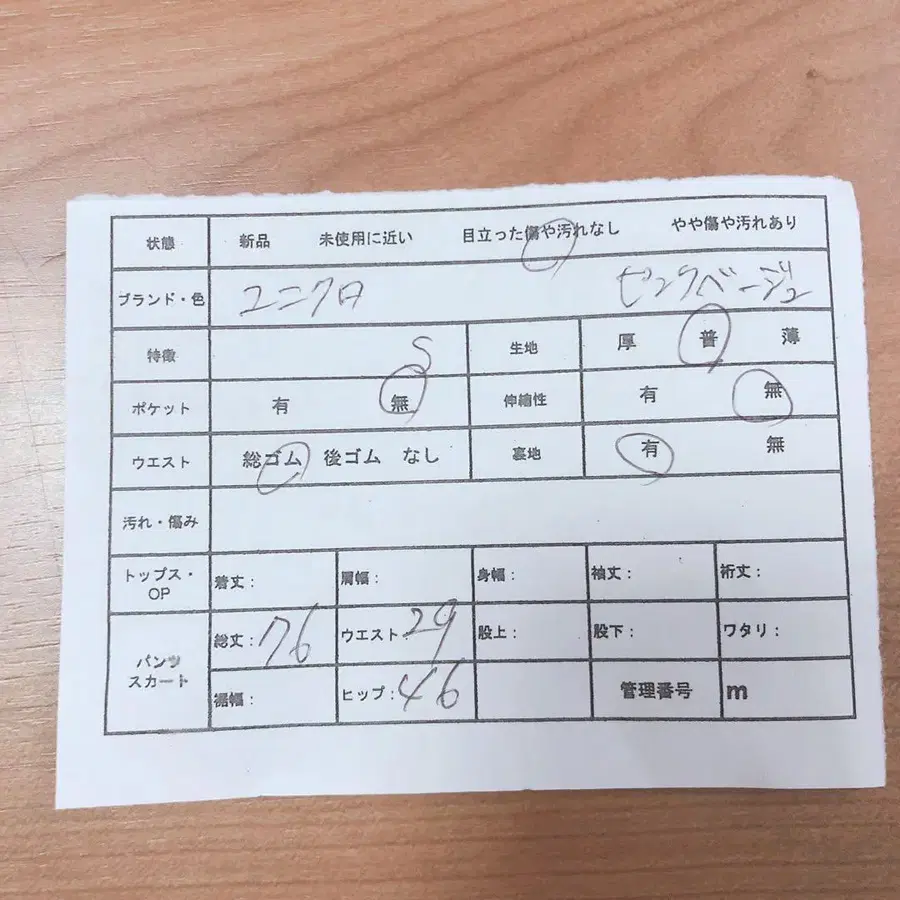 状態 新品 未使用に近い 目立った傷や汚れなし やや傷や汚れあり
ブランド・色 ユニクロ ピンクベージュ
特徴 S 生地 厚 普 薄
ポケット 有 無 伸縮性 有 無
ウエスト 総ゴム 後ゴム なし 裏地 有 無
汚れ・傷み
トップス・OP 着丈: 肩幅: 身幅: 袖丈: 裄丈:
パンツ スカート 総丈:76 ウエスト:29 股上: 股下: ワタリ:
裾幅: ヒップ:46 管理番号 m